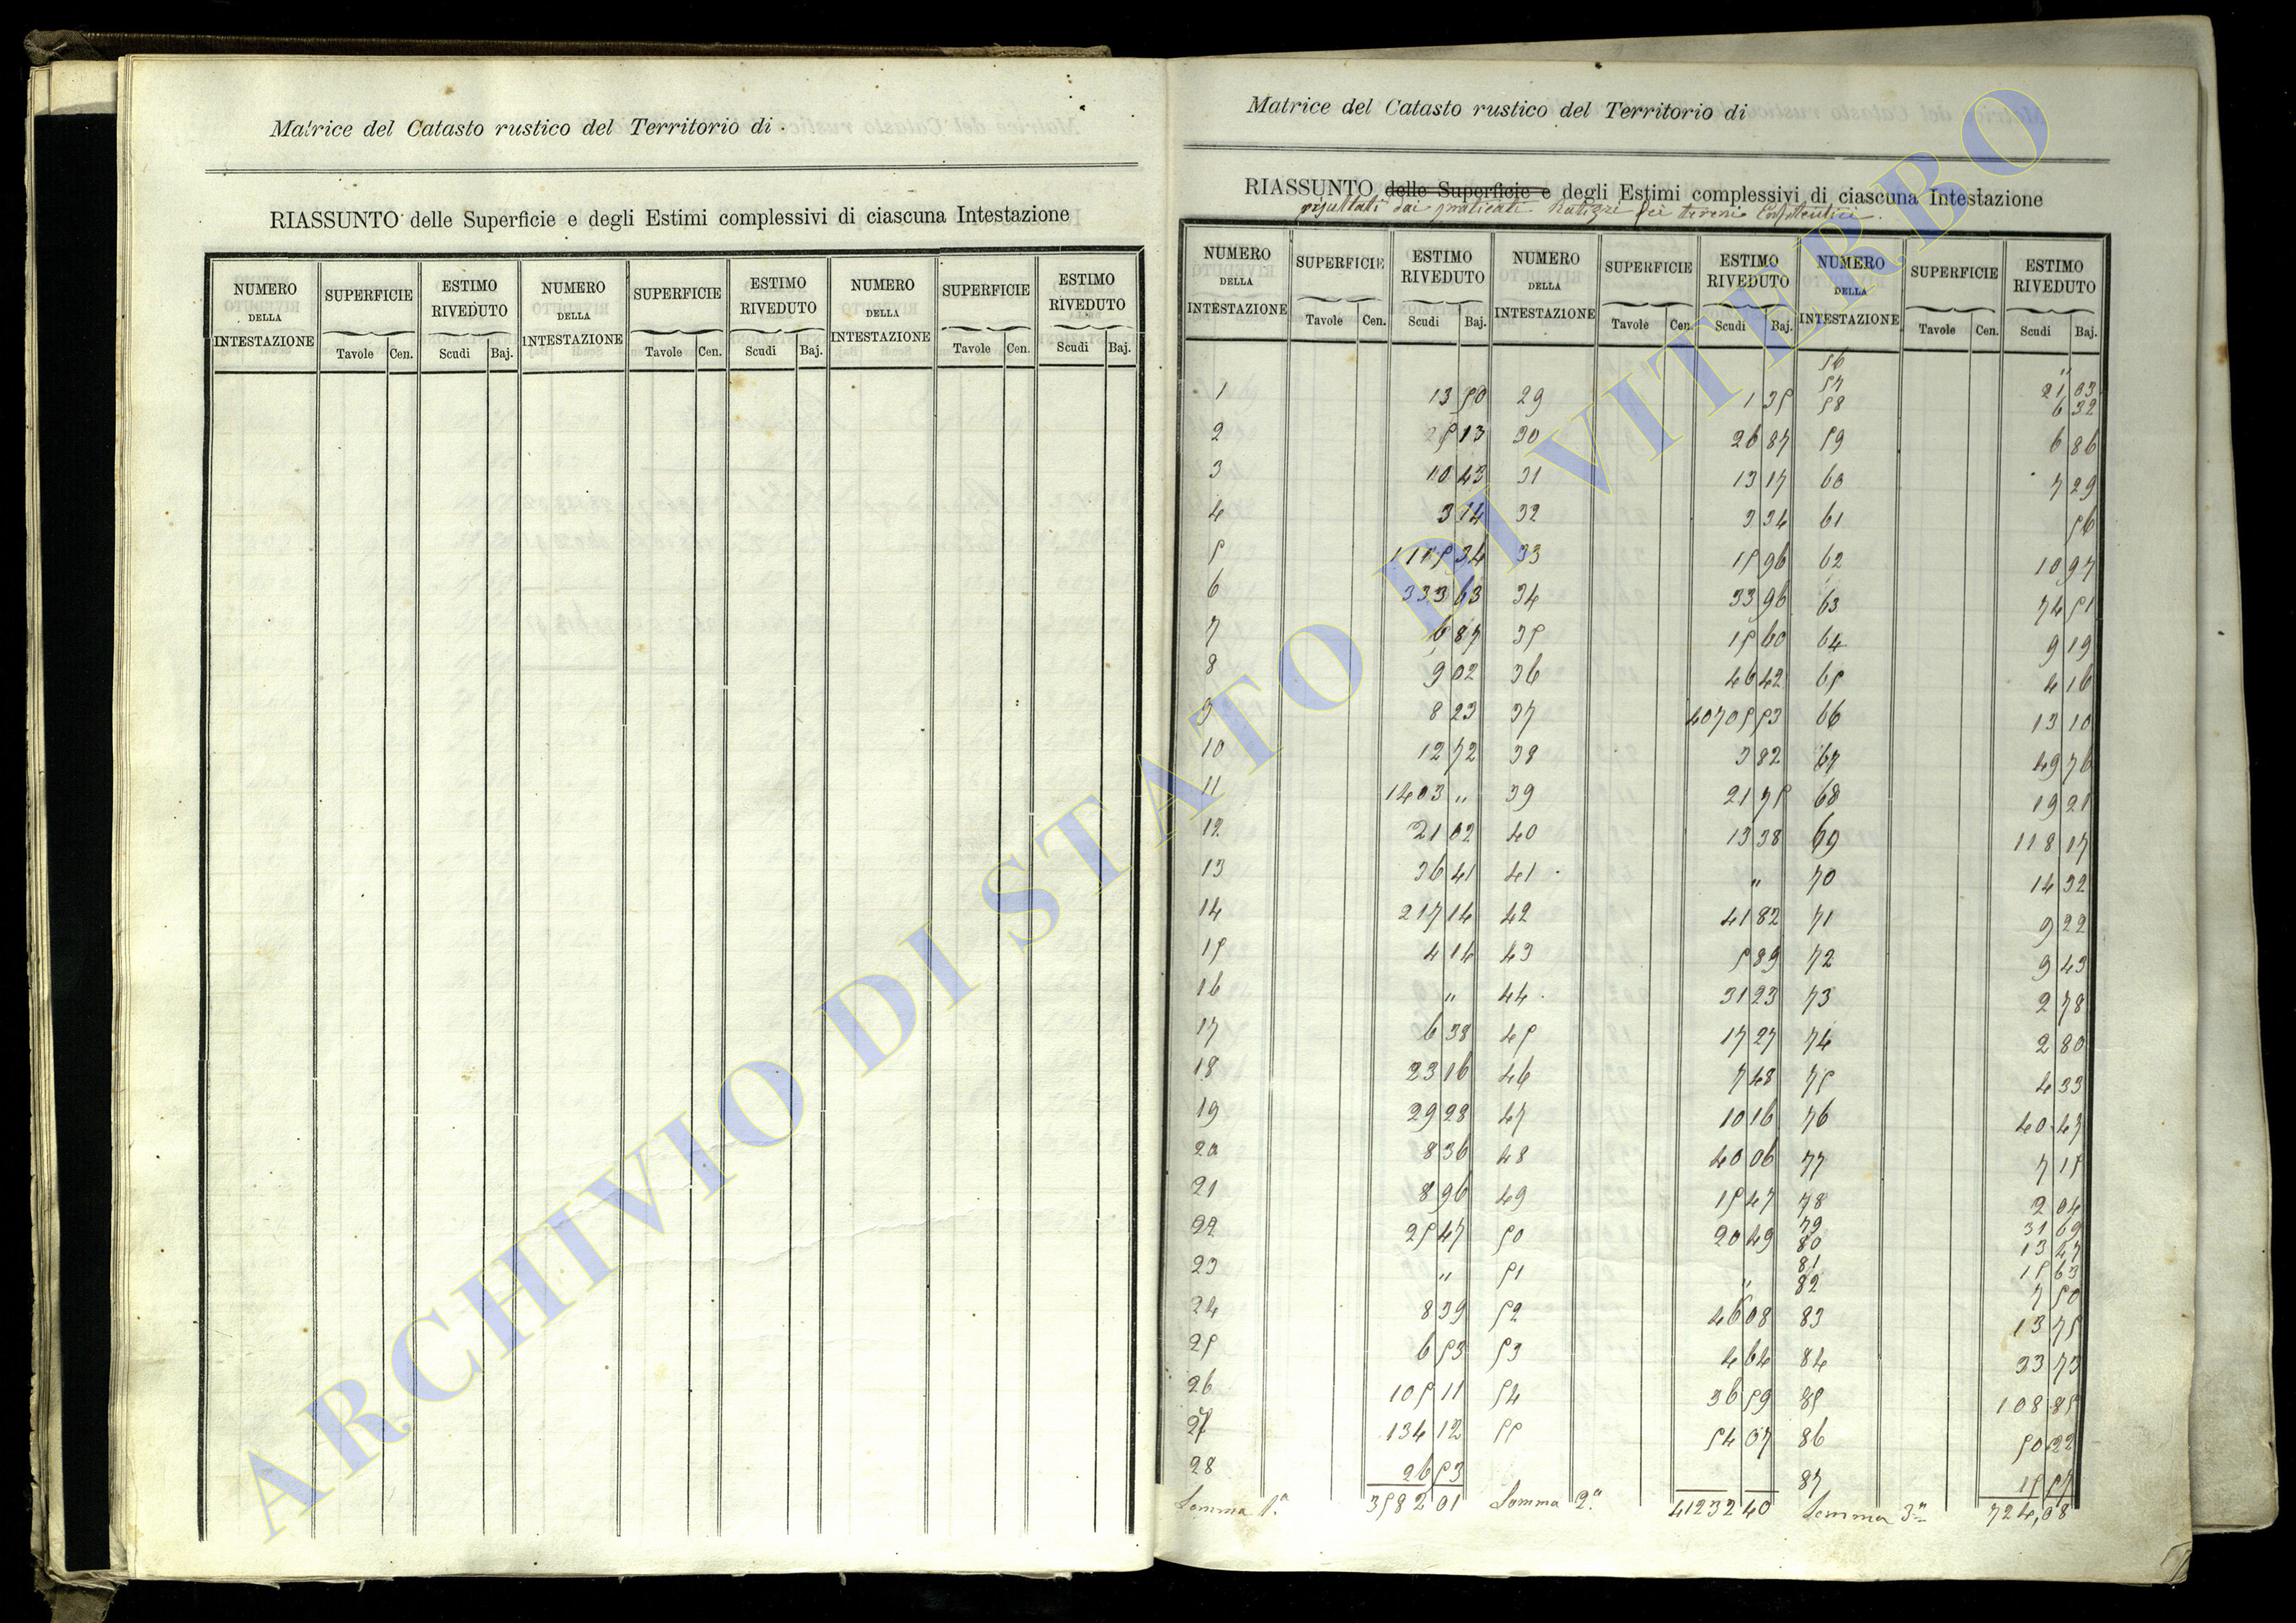 Matrice del Catasto rustico del Territorio di
RIASSUNTO delle Superficie e degli Estimi complessivi di ciascuna Intestazione
NUMERO DELLA INTESTAZIONE SUPERFICIE ESTIMO RIVEDUTO NUMERO DELLA INTESTAZIONE SUPERFICIE ESTIMO RIVEDUTO NUMERO DELLA INTESTAZIONE SUPERFICIE ESTIMO RIVEDUTO
Tavole Cen. Scudi Baj. Tavole Cen. Scudi Baj. Tavole Cen. Scudi Baj.
Matrice del Catasto rustico del Territorio di
RIASSUNTO delle Superficie e degli Estimi complessivi di ciascuna Intestazione
risultati dai praticati Ratizzi dei terreni Enfiteutici.
NUMERO DELLA INTESTAZIONE SUPERFICIE ESTIMO RIVEDUTO NUMERO DELLA INTESTAZIONE SUPERFICIE ESTIMO RIVEDUTO NUMERO DELLA INTESTAZIONE SUPERFICIE ESTIMO RIVEDUTO
Tavole Cen. Scudi Baj. Tavole Cen. Scudi Baj. Tavole Cen. Scudi Baj.
56 "
57 21 03
1 13 50 29 1 35 58 6 32
2 5 13 30 26 87 59 6 86
3 10 43 31 13 17 60 7 29
4 3 14 32 3 34 61 56
5 1115 34 33 15 96 62 10 97
6 333 63 34 33 96 63 74 51
7 6 87 35 15 60 64 9 19
8 9 02 36 46 42 65 4 16
9 8 23 37 40705 53 66 13 10
10 12 72 38 3 82 67 49 76
11 1403 " 39 21 75 68 19 21
12 21 02 40 13 38 69 118 17
13 36 41 41 " 70 14 32
14 217 14 42 41 82 71 9 22
15 4 14 43 5 89 72 9 43
16 " 44 31 23 73 2 78
17 6 38 45 17 27 74 2 80
18 23 16 46 7 48 75 4 33
19 29 28 47 10 16 76 40 47
20 8 36 48 40 06 77 7 15
21 8 96 49 15 47 78 2 04
79 31 69
22 25 47 50 20 49 80 13 47
81 15 63
23 " 51 " 82 7 50
24 8 39 52 46 08 83 13 75
25 6 53 53 4 64 84 33 73
26 105 11 54 36 59 85 108 85
27 134 12 55 54 07 86 50 22
28 26 53 87 15 57
Somma 1.a 3582 01 Somma 2.a 41232 40 Somma 3.a 724,08
ARCHIVIO DI STATO DI VITERBO